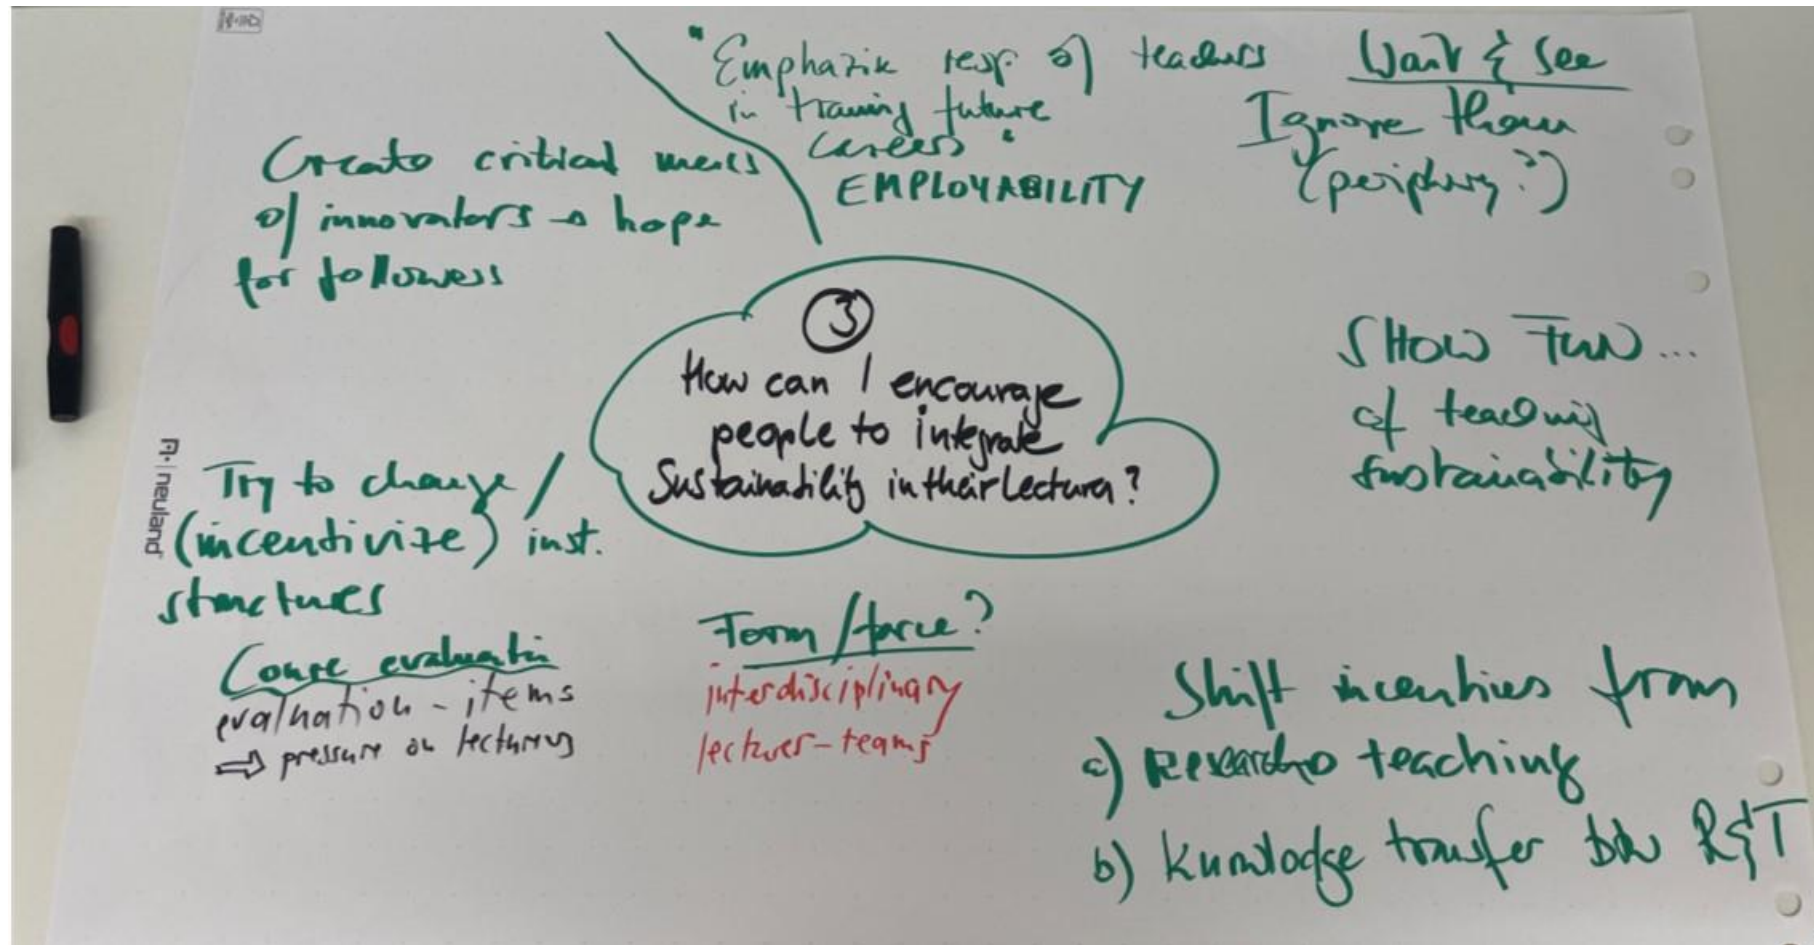 "Emphazise resp. of teachers
in training future
careers"
EMPLOYABILITY
Wait & See
Ignore them
(periphery?)
Create critical mass
of innovators → hope
for followers
③
How can I encourage
people to integrate
Sustainability in their lectures?
SHOW FUN...
of teaching
sustainability
Try to change /
(incentivize) inst.
structures
Course evaluation
evaluation-items
⇒ pressure on lecturers
Form/force?
interdisciplinary
lecturer-teams
Shift incentives from
a) Research → teaching
b) Knowledge transfer btw R&T
neuland